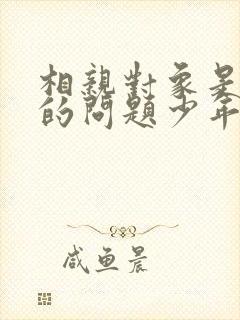 相親對象是
的問題少年
咸鱼晨